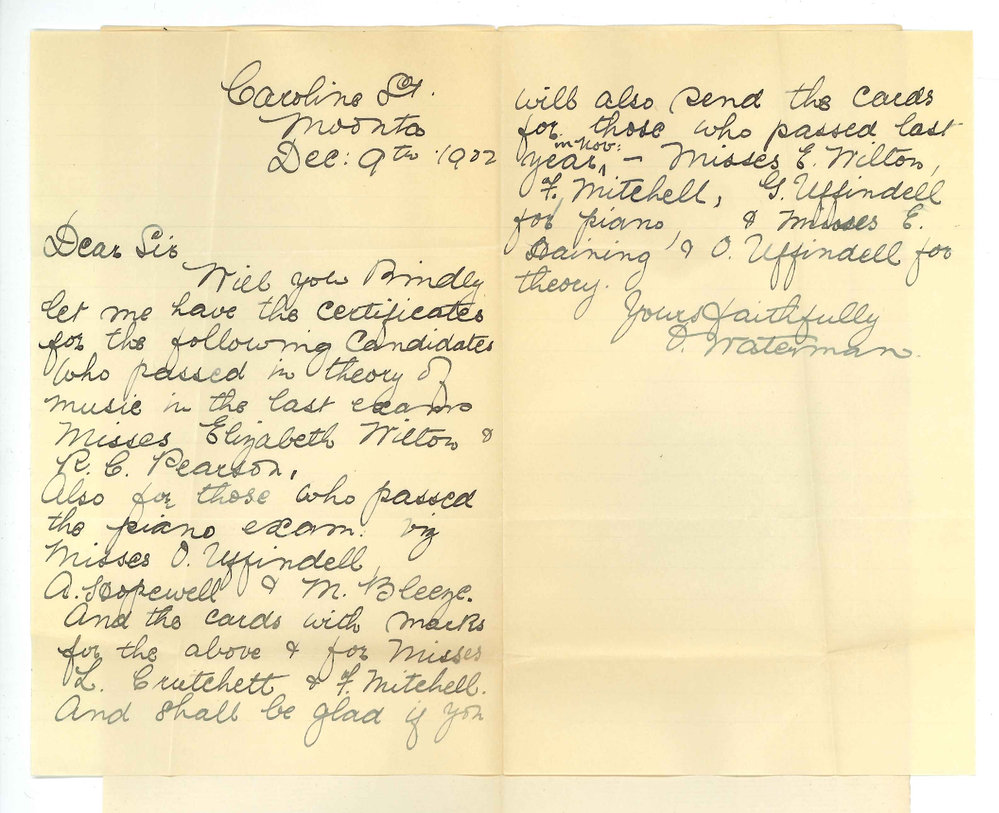 Caroline St.
Moonta
Dec: 9th 1902
Dear Sir
Will you kindly
let me have the certificates
for the following Candidates
who passed in theory of
music in the last exams
Misses Elizabeth Wilton &
R. C. Pearson,
Also for those who passed
the piano exam: viz
Misses O. Uffindell
A. Hopewell & M. Bleeze.
And the cards with marks
for the above & for Misses
L. Crutchett & F. Mitchell.
And shall be glad if you
will also send the cards
for those who passed last
year, in Nov: – Misses E. Wilton,
F. Mitchell, G. Uffindell
for piano, & Misses E.
Haining & O. Uffindell for
theory.
Yours Faithfully
O. Waterman.